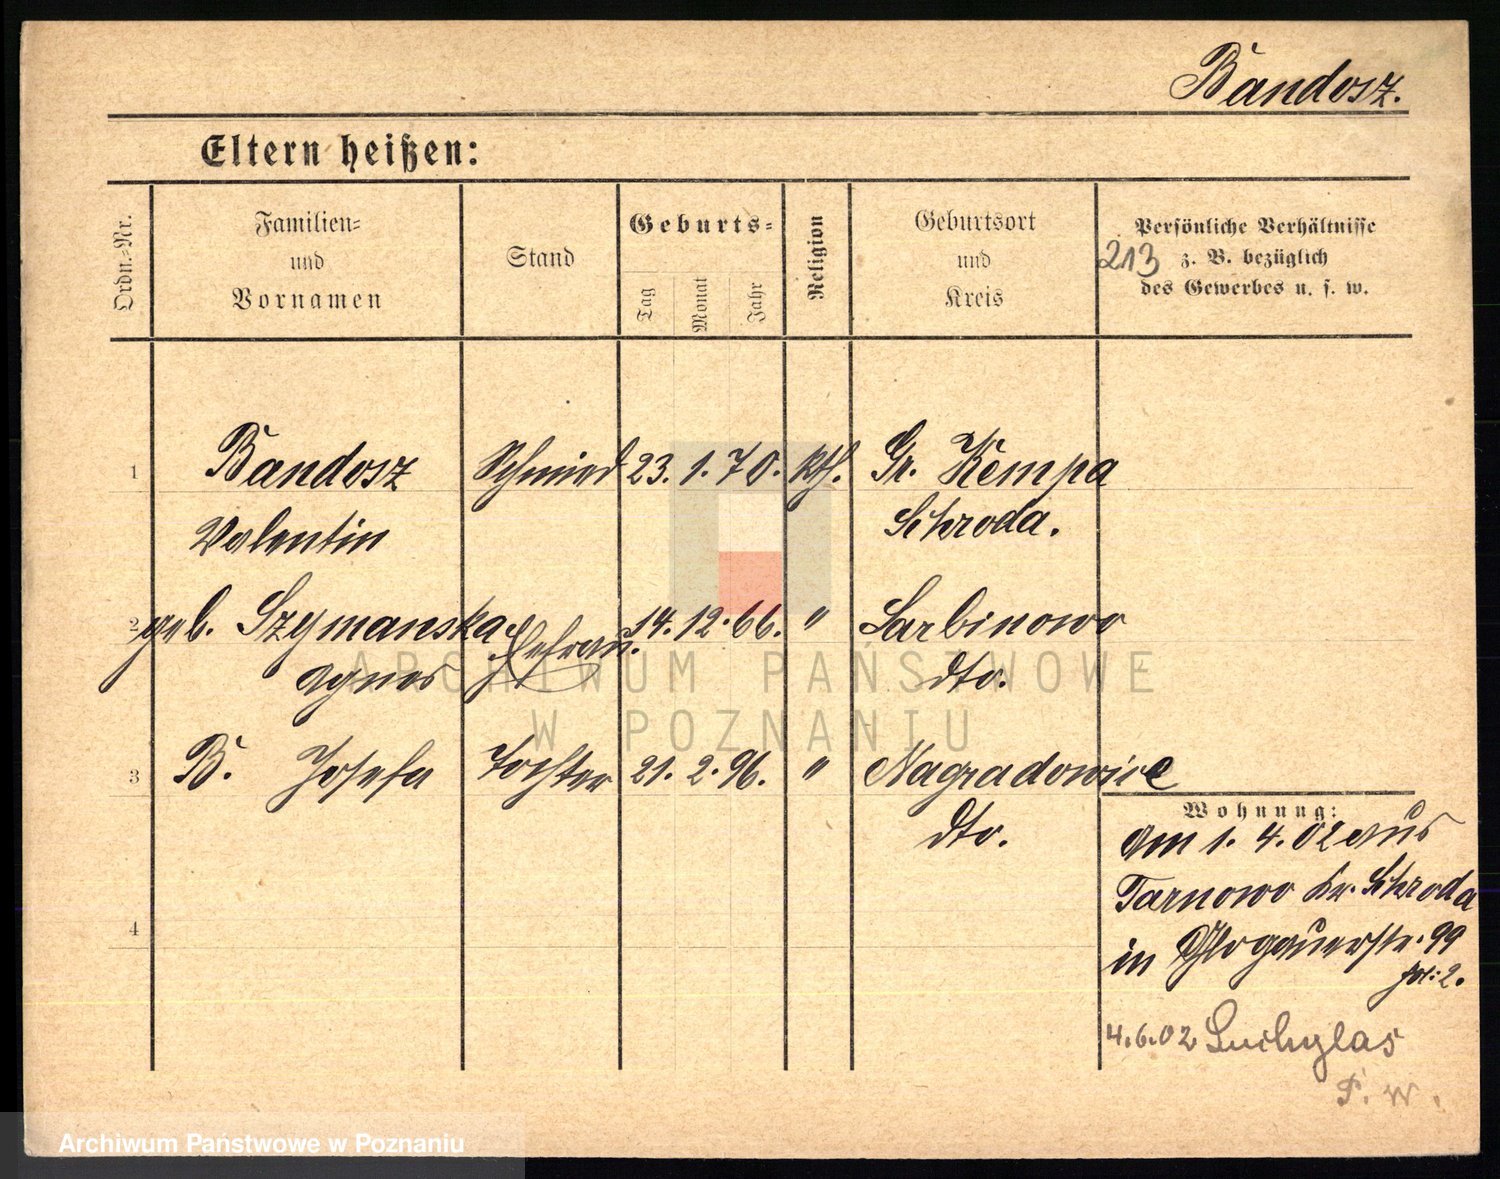 Bandosz.
Eltern heißen:
Ordn.-Nr.
Familien-
und
Vornamen
Stand
Geburts-
Tag
Monat
Jahr
Religion
Geburtsort
und
Kreis
Persönliche Verhältnisse
z. B. bezüglich
des Gewerbes u. s. w.
213
1
Bandosz Schmied 23. 1. 70. kth. Gr. Kempa
Valentin Schroda.
2
geb. Szymanska Ehefrau. 14. 12. 66. " Sarbinowo
Agnes dto.
3
B. Josefa Tochter 21. 2. 96. " Nagradowice
dto.
4
Wohnung:
am 1. 4. 02 aus
Tarnowo Kr. Schroda
in Glogauerstr. 99
4.6.02
P. W.
ARCHIWUM PAŃSTWOWE
W POZNANIU
Archiwum Państwowe w Poznaniu